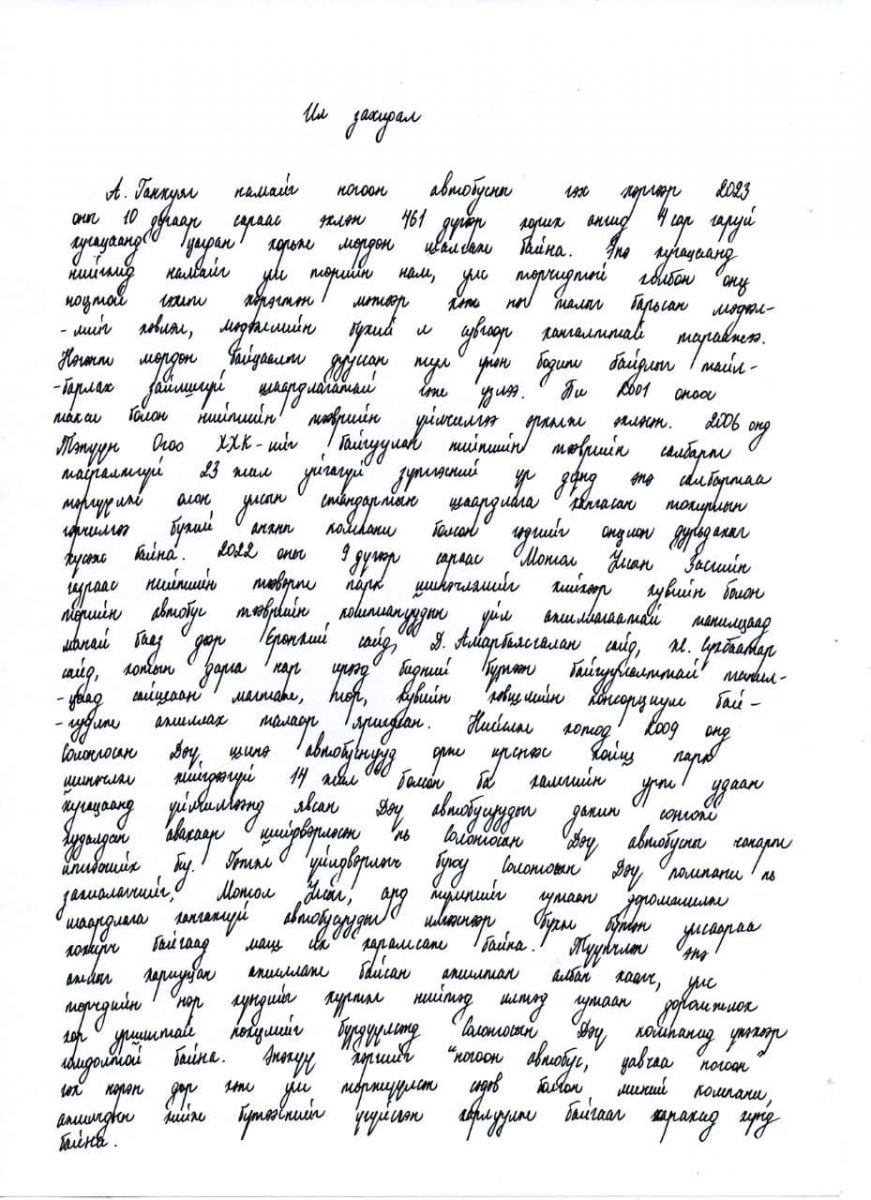 Ил захидал
А. Ганхуяг намайг ногоон автобусны гэх хэргээр 2023
оны 10 дугаар сараас эхлэн 461 дүгээр хорих ангид 4 сар гаруй
хугацаанд цагдан хорьж мөрдөн шалгаж байна. Энэ хугацаанд
нийгмд намайг улс төрийн нам, улс төрчидтэй холбон онц
ноцтой гэмт хэрэгтэн мэтээр хэт нэг талыг барьсан мэдээл-
-лийг хэвлэл, мэдээллийн бүхий л сувгаар хангалттай тараажээ.
Нэгэнт мөрдөн байцаалт дууссан тул үнэн бодит байдлыг тайл-
-барлах зайлшгүй шаардлагатай гэж үзлээ. Би 2001 оноос
такси болон нийтийн тээврийн үйлчилгээ эрхэлж эхэлсэн. 2006 онд
Тэнүүн Огоо ХХК-ийг байгуулан нийтийн тээврийн салбарт
тасралтгүй 23 жил уйгагүй зүтгэсний үр дүнд энэ салбартаа
тэргүүлж олон улсын стандартын шаардлага хангасан тохирлын
гэрчилгээ бүхий анхны компани болсон гэдгийг онцлон дурьдахыг
хүсэж байна. 2022 оны 9 дүгээр сараас Монгол Улсын Засгийн
газраас нийтийн тээвэрт парк шинэчлэлийг хийхээр хувийн болон
төрийн автобус тээврийн компаниудын үйл ажиллагаатай танилцаад
манай бааз дээр Ерөнхий сайд, Д. Амарбаясгалан сайд, Ж. Сүхбаатар
сайд, хотын дарга нар ирээд бидний бүтээн байгуулалттай танил-
-цаад сайшаан магтаж, төр, хувийн хэвшлийн консорциум бай-
-гуулж ажиллах талаар ярилцсан. Нийслэл хотод 2009 онд
Солонгосын Дэү шинэ автобуснууд орж ирснээс хойш парк
шинэчлэл хийгдээгүй 14 жил болсон ба хамгийн урт удаан
хугацаанд үйлчилгээнд явсан Дэү автобусуудыг дахин сонгож
худалдан авахаар шийдвэрлэсэн нь Солонгосын Дэү автобусны чанарт
итгэсэнийх юу. Гэтэл үйлдвэрлэгч буюу Солонгосын Дэү компани нь
захиалагчийг, Монгол Улсыг, ард түмнийг гутаан доромжилж
шаардлага хангахгүй автобусуудыг илгээснээр бүхэл бүтэн улсаараа
хохирч байгаад маш их харамсаж байна. Түүнчлэн энэ
ажлыг хариуцан ажиллаж байсан ажилтан албан хаагч, улс
төрчдийн нэр хүндийг хүртэл нийтэд илтэд гутаан доромжлох
хор уршигтай нөхцлийг бүрдүүлсэнд Солонгосын Дэү компанид үнэхээр
гомдолтой байна. Энэхүү хэргийг "ногоон автобус, цавчаа ногоон"
гэх нэрэн дор хэт улс төржүүлсэн сэдэв болгон миний компани,
ажилчдын хийж бүтээснийг үгүйсгэн харлуулж байгааг харахад хүнд
байна.